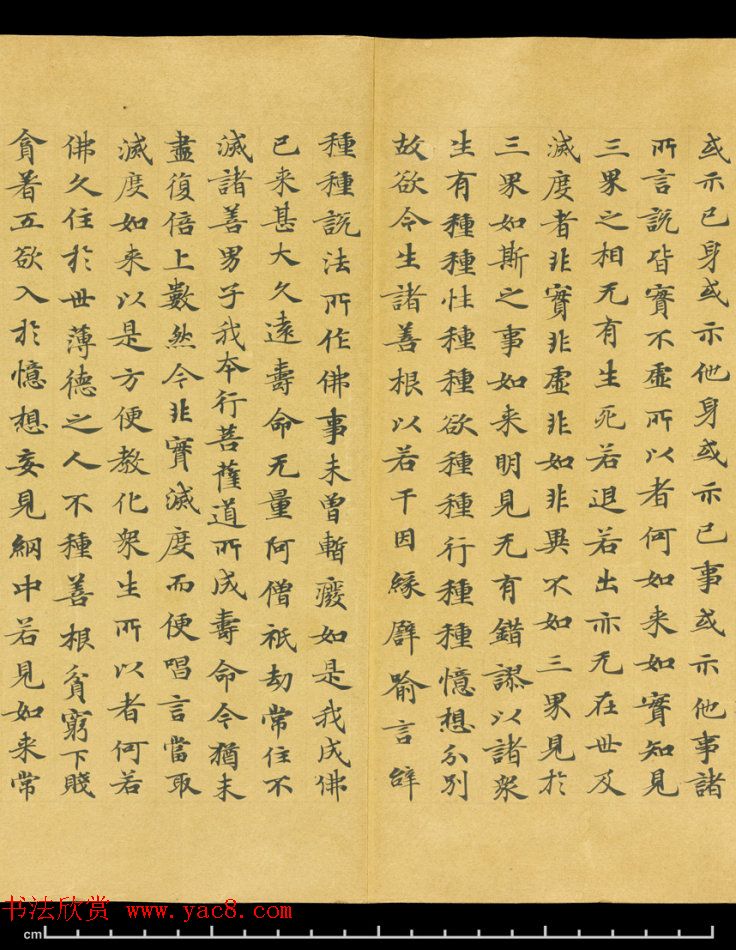 或示己身或示他身或示己事或示他事諸
所言說皆實不虛所以者何如来如實知見
三界之相无有生死若退若出亦无在世及
滅度者非實非虛非如非異不如三界見於
三界如斯之事如来明見无有錯謬以諸衆
生有種種性種種欲種種行種種憶想分別
故欲令生諸善根以若干因緣譬喻言辭
種種說法所作佛事未曾暫廢如是我成佛
已来甚大久遠壽命无量阿僧祇劫常住不
滅諸善男子我本行菩薩道所成壽命今猶未
盡復倍上數然今非實滅度而便唱言當取
滅度如来以是方便教化衆生所以者何若
佛久住於世薄德之人不種善根貧窮下賤
貪着五欲入於憶想妄見網中若見如来常
书法欣赏 www.yac8.com
cm